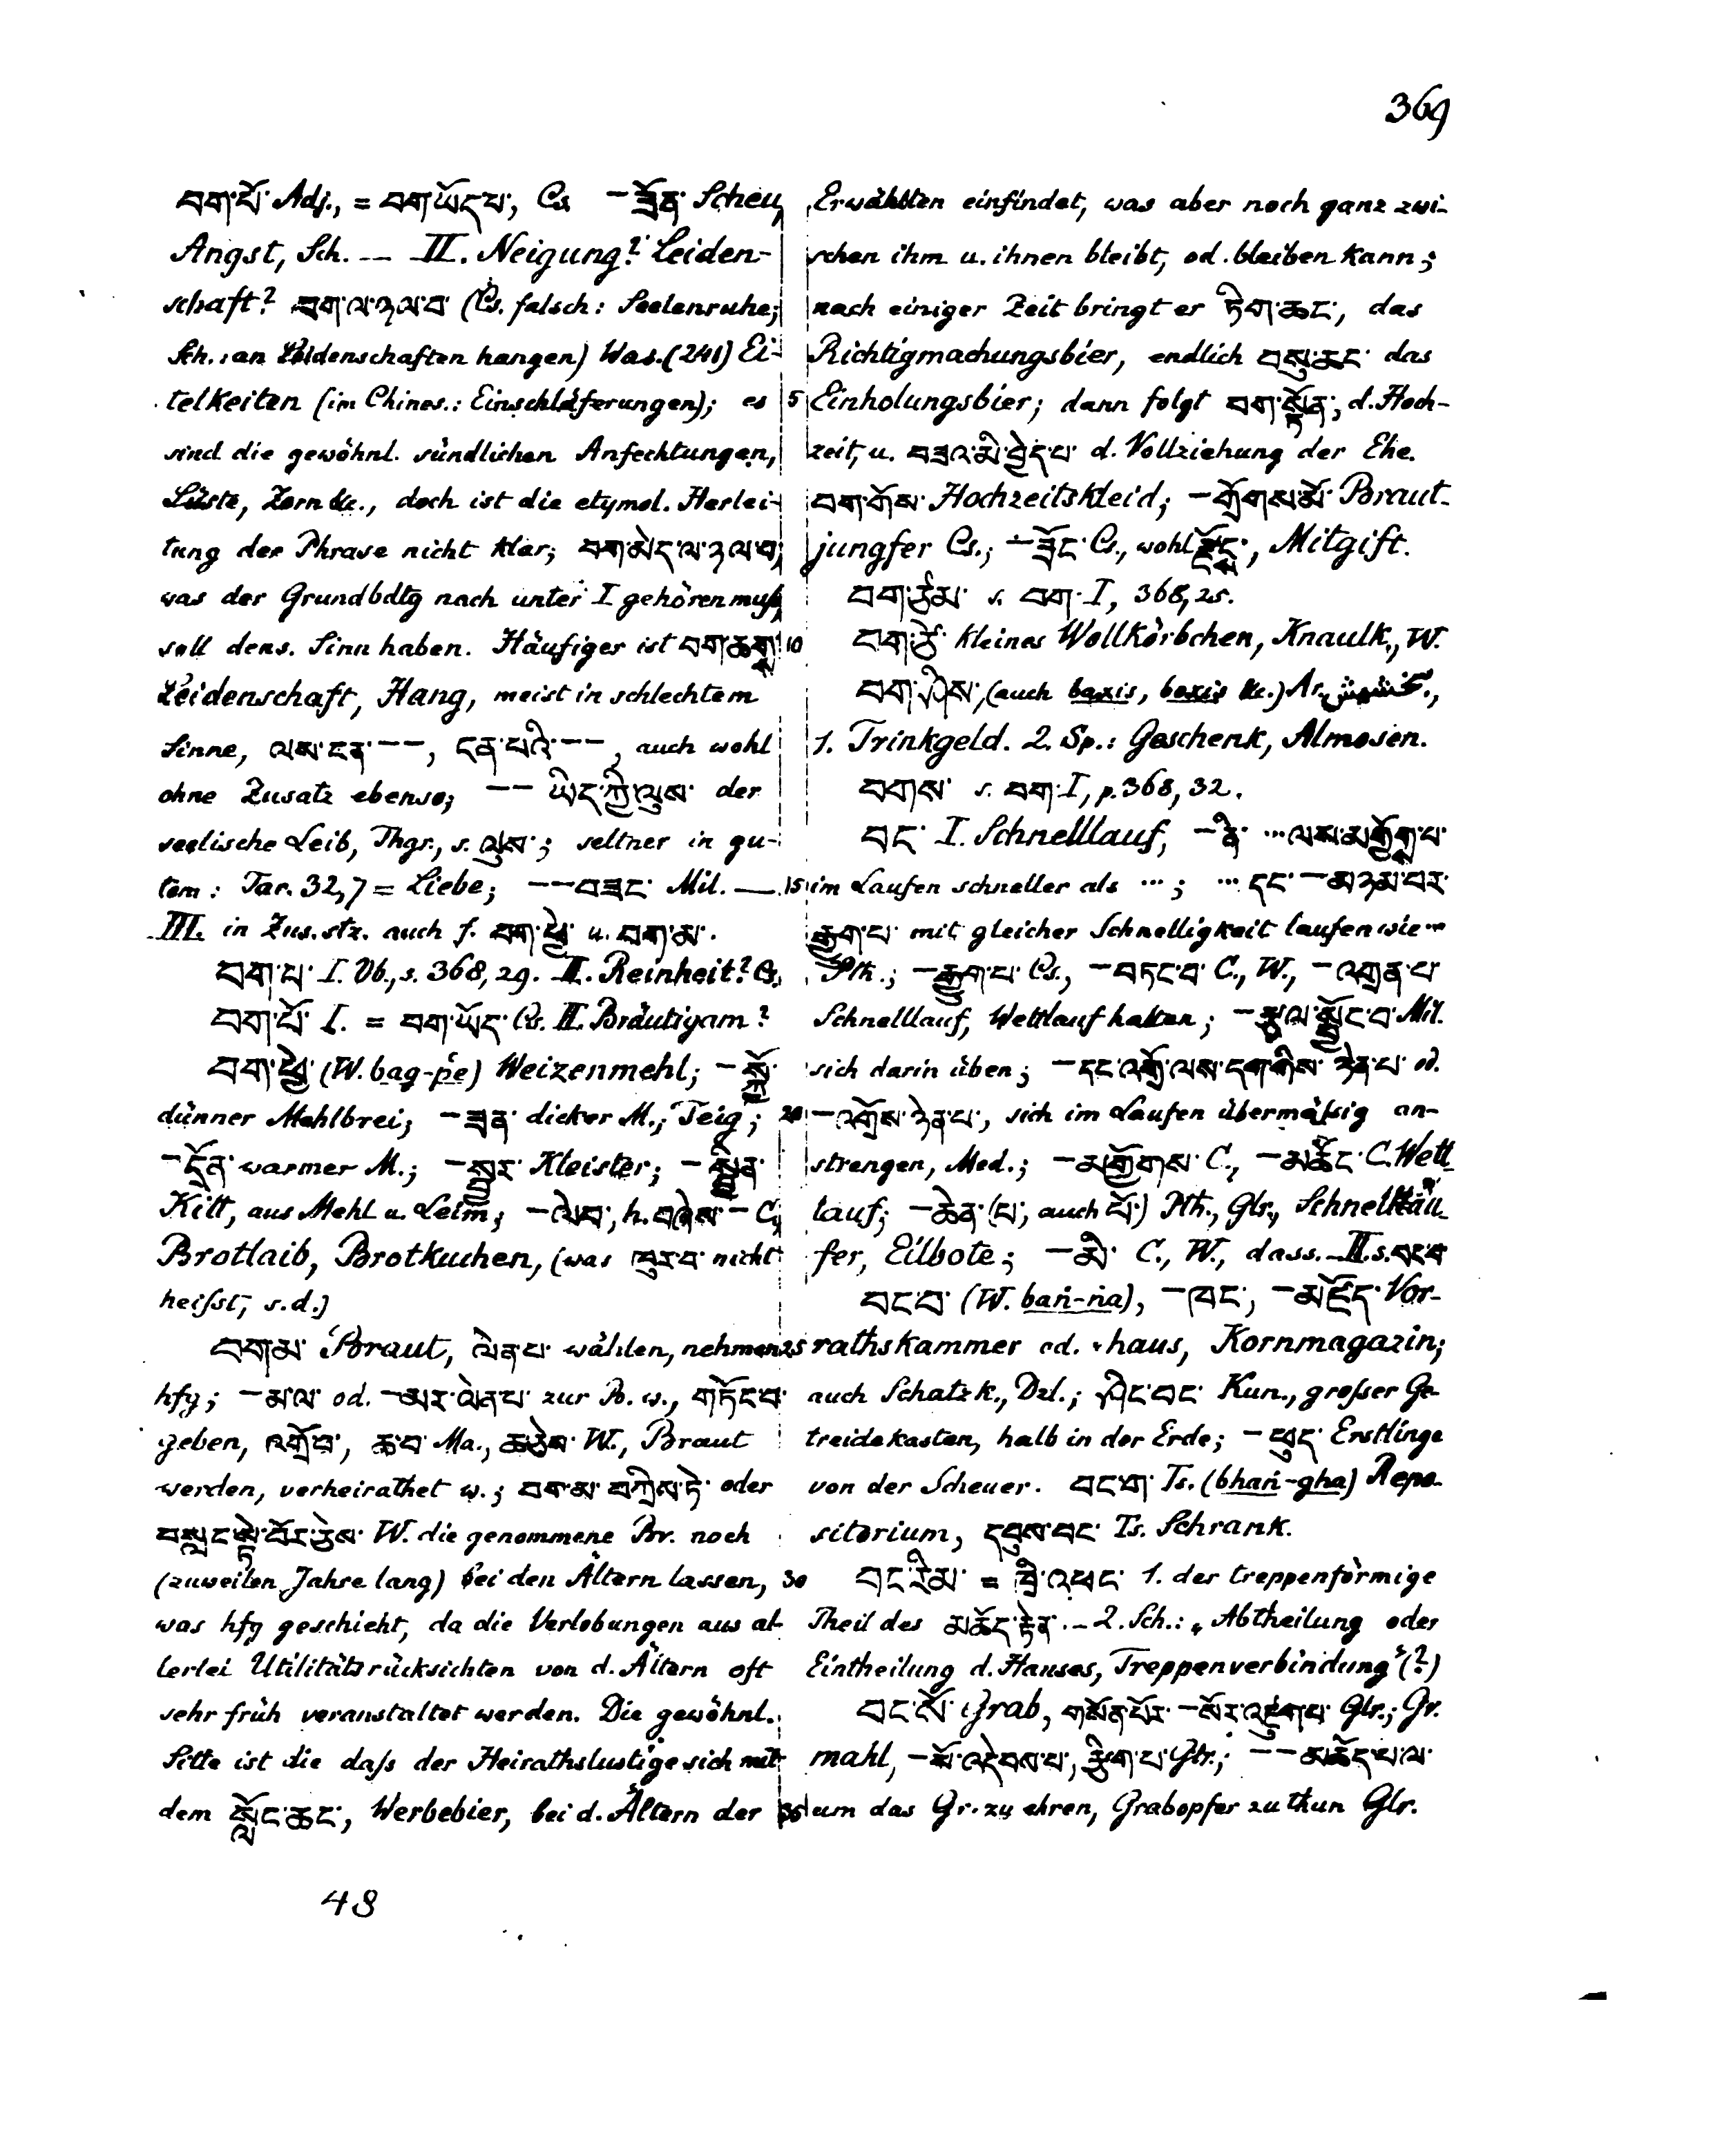 369
བག་པོ་ Adj., = བག་ཡོད་པ་, Cs. –ཟོན་ Scheu,
Angst, Sch. –– II. Neigung? Leiden-
schaft? བག་ལ་ཉལ་བ་ (Cs. falsch: Seelenruhe;
Sch.: an Leidenschaften hangen) Was. (241) Ei-
telkeiten (im Chines.: Einschläferungen); es
sind die gewöhnl. sündlichen Anfechtungen,
Lüste, Zorn &c., doch ist die etymol. Herlei-
tung der Phrase nicht klar; བག་མེད་ལ་ཉལ་བ,
was der Grundbdtg nach unter I gehören muß,
soll dens. Sinn haben. Häufiger ist བག་ཆགས་
Leidenschaft, Hang, meist in schlechtem
Sinne, ལས་ངན་––, ངན་པའི་––, auch wohl
ohne Zusatz ebenso; –– ཡིད་ཀྱི་ལུས་ der
seelische Leib, Thgr., s. ལུས་; seltner in gu-
tem: Tar. 32,7 = Liebe; ––བཟང་ Mil. —
III. in Zus.stz. auch f. བག་ཕྱེ་ u. བག་མ་.
བག་པ་ I. Vb., s. 368, 29. II. Reinheit? Cs.
བག་པོ་ I. = བག་ཡོད་ Cs. II. Bräutigam?
བག་ཕྱེ་ (W. bag-pe) Weizenmehl; –སྐྱོ་
dünner Mehlbrei; –ཟན་ dicker M., Teig;
–དྲོན་ warmer M.; –སྦྱར་ Kleister; –སྦྱིན་
Kitt, aus Mehl u. Leim; –ལེབ་, h. བཞེས་– C.,
Brotlaib, Brotkuchen, (was ཁུར་བ་ nicht
heißt, s.d.)
བག་མ་ Braut, ལེན་པ་ wählen, nehmen
hfg; –མ་ལ་ od. –མར་ལེན་པ་ zur B. w., གཏོང་བ་
geben, འགྲོ་བ་, ཆ་བ་ Ma., ཆ་ཅེས་ W., Braut
werden, verheirathet w.; བག་མ་ བཀྲིས་ཏེ་ oder
བསླང་སྟེ་བོར་ཅེས་ W. die genommene Br. noch
(zuweilen Jahre lang) bei den Ältern lassen,
was hfg geschieht, da die Verlobungen aus al-
lerlei Utilitätsrücksichten von d. Ältern oft
sehr früh veranstaltet werden. Die gewöhnl.
Sitte ist die daß der Heirathslustige sich mit
dem སློང་ཆང་, Werbebier, bei d. Ältern der
48
5
10
15
20
25
30
35
Erwählten einfindet, was aber noch ganz zwi-
schen ihm u. ihnen bleibt, od. bleiben kann;
nach einiger Zeit bringt er ཏིག་ཆང་, das
Richtigmachungsbier, endlich བསུ་ཆང་ das
Einholungsbier; dann folgt བག་སྟོན་, d. Hoch-
zeit, u. བཟའ་མི་བྱེད་པ་ d. Vollziehung der Ehe.
བག་གོས་ Hochzeitskleid; –གྲོགས་མོ་ Braut-
jungfer Cs.; –ཟོང་ Cs., wohl རྫོངས་, Mitgift.
བག་ཙམ་ s. བག་ I, 368, 25.
བག་ཙེ་ kleines Wollkörbchen, Knaulk., W.
བག་ཤིས་, (auch baxis, boxis &c.) Ar.
1. Trinkgeld. 2. Sp.: Geschenk, Almosen.
བགས་ s. བག་ I, p. 368, 32.
བང་ I. Schnelllauf, –ནི་ ...ལས་མགྱོགས་པ་
im Laufen schneller als ...; ... དང་ –མཉམ་པར་
རྒྱུག་པ་ mit gleicher Schnelligkeit laufen wie ...
Pth.; –རྒྱུག་པ་ Cs., –བཏང་བ་ C., W., –འགྲན་པ་
Schnelllauf, Wettlauf halten; –རྩལ་སྦྱོང་བ་ Mil.
sich darin üben; –དང་འགྲོ་ལས་དྲགས་གིས་ ཉེན་པ་ od.
–འགྲོས་ཉེན་པ་, sich im Laufen übermäßig an-
strengen, Med.; –མགྱོགས་ C., –མཆོང་ C. Wett-
lauf; –ཆེན་ (པ་, auch པོ་) Pth., Glr., Schnellläu-
fer, Eilbote; –མི་ C., W., dass. – II. s. བང་བ་
བང་བ་ (W. baṅ-ṅa), –ཁང་, –མཛོད་ Vor-
rathskammer od. -haus, Kornmagazin;
auch Schatzk., Dzl.; ཤིང་བང་ Kun., großer Ge-
treidekasten, halb in der Erde; –ཕུད་ Erstlinge
von der Scheuer. བང་ག་ Ts. (bhaṅ-gha) Repo-
sitorium, དཔུས་བང་ Ts. Schrank.
བང་རིམ་ = བྲི་འཕང་ 1. der treppenförmige
Theil des མཆོད་རྟེན་. – 2. Sch.: „Abtheilung oder
Eintheilung d. Hauses, Treppenverbindung“ (?)
བང་སོ་ Grab, གསོན་པོར་ –སོར་འཇུག་པ་ Glr.; Gr.
mahl, –སོ་འདེབས་པ་, རྩིག་པ་ Glr.; ––མཆོད་པ་ལ་
um das Gr. zu ehren, Grabopfer zu thun Glr.